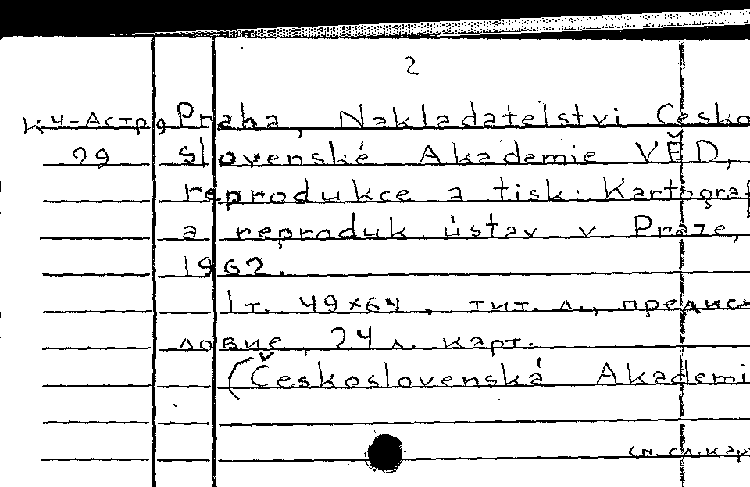 2
К4-Астр Praha, Nakladatelstvi Česko
29 slovenské Akademie VĚD,
reprodukce a tisk: Kartograf
a reproduk. ústav v Praze,
1962.
1т. 49×64. тит. л., предис-
ловие, 24 л. карт.
(Československá Akademi
см. сл. кар